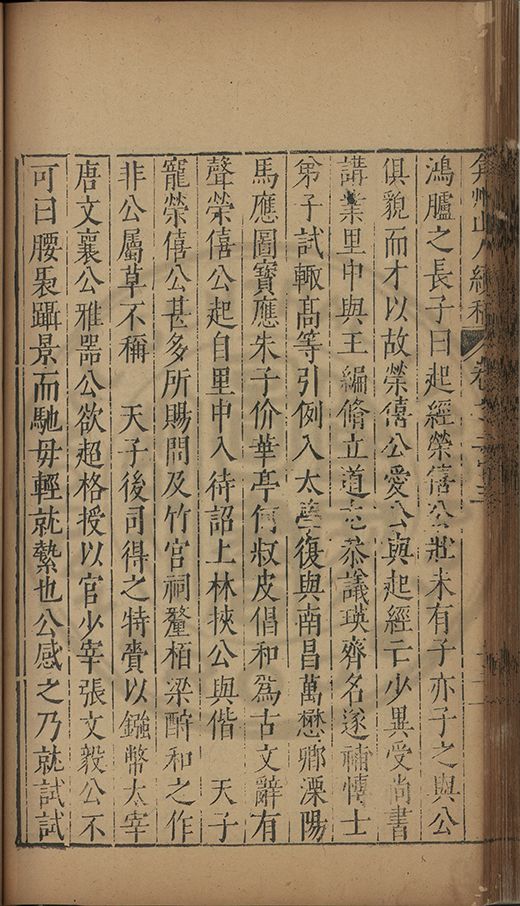 弇州山人續稿 卷之一百
鴻臚之長子曰起經榮僖公壯未有子亦子之與公
俱貌而才以故榮僖公愛公與起經亡少異受尚書
講業里中與王編脩立道尤恭議瑛齊名遂補博士
弟子試輙高等引例入太學復與南昌萬懋卿溧陽
馬應圖寶應朱子价華亭何叔皮倡和為古文辭有
聲榮僖公起自里中入待詔上林挾公與偕 天子
寵榮僖公甚多所賜問及竹宮祠釐栢梁酧和之作
非公屬草不稱 天子後司得之特賚以鏹幣太宰
唐文襄公雅器公欲超格授以官少宰張文毅公不
可曰腰褭躡景而馳毋輕就縶也公感之乃就試試